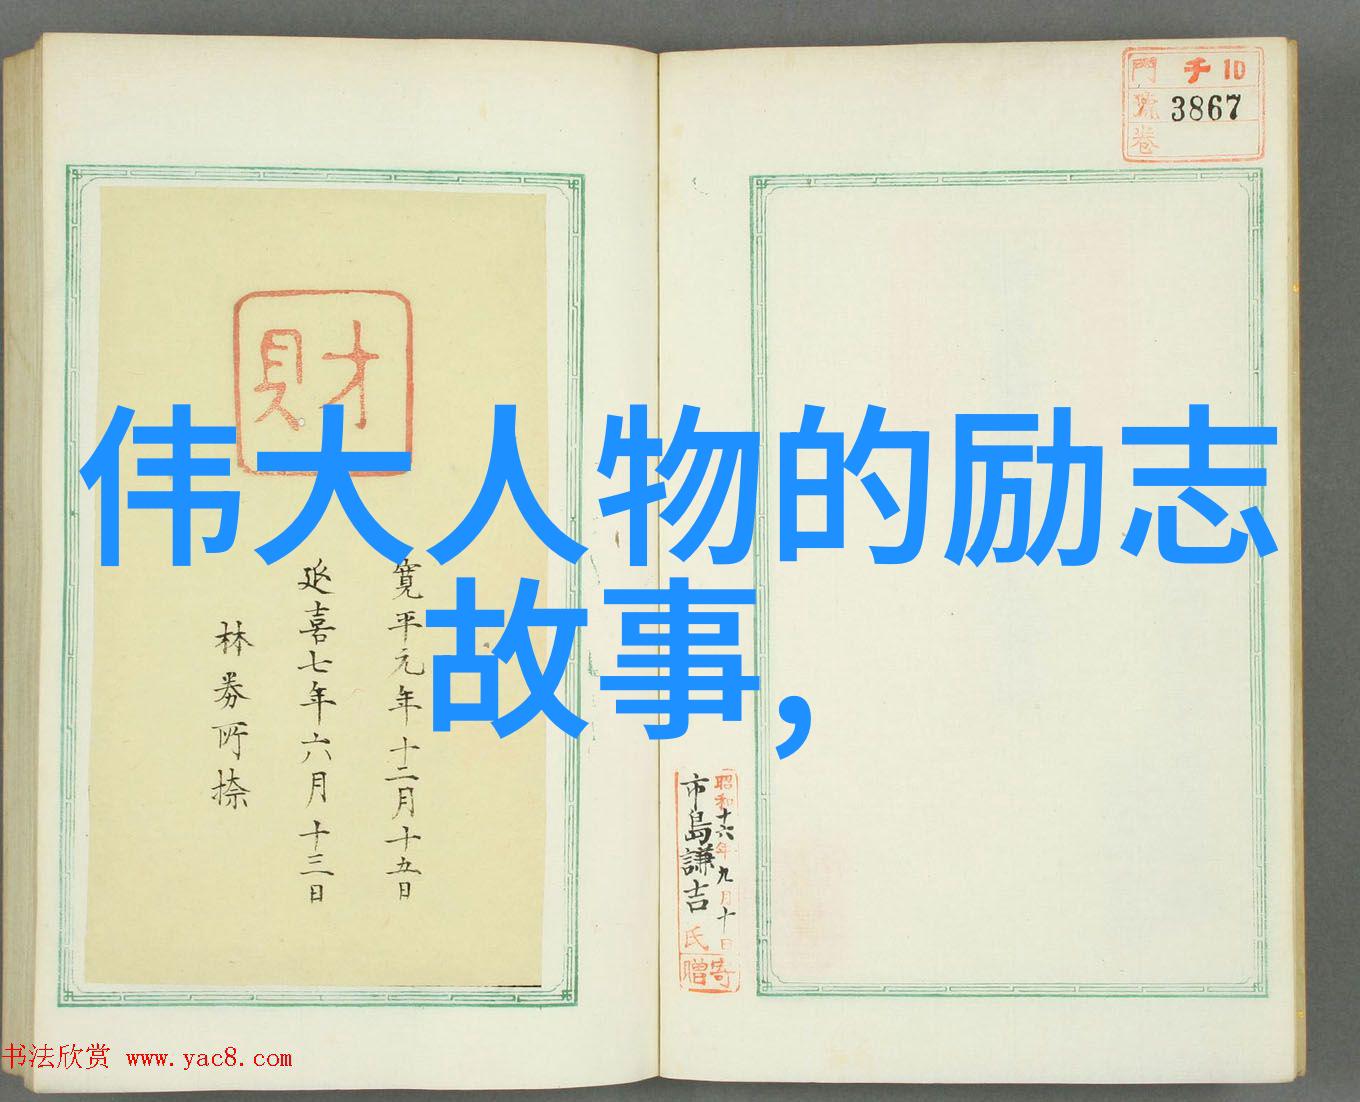 門 千 10
號 3867
卷
財
伟大人物的励志
故事,
寛平元年十二月十五日
延喜七年六月十三日
林券所捺
昭和十六年九月十日
市島謙吉氏
寄贈
书法欣赏 www.yac8.com